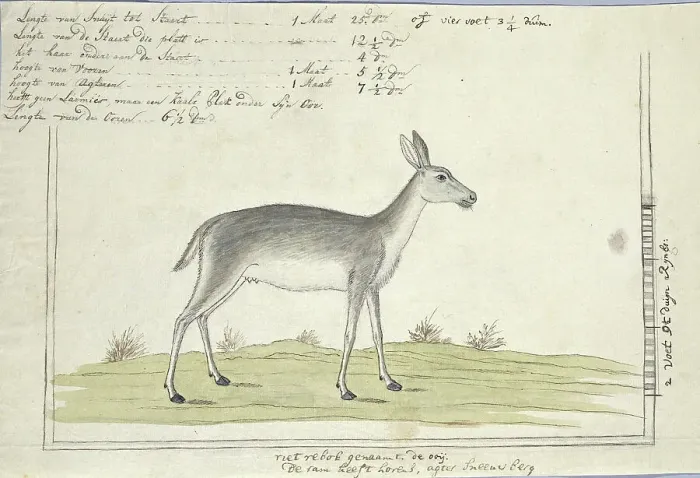 Lingte van Snuyt tot Staert 1 Maat 25 dm of vier voet 3 1/4 duim.
Lingte van de Staert die platt is 12 1/2 dm
het haar onder aan de Staert 4 dm
hoogte van Vooren 1 Maat 5 1/2 dm
hoogte van Agteren 1 Maat 7 1/2 dm
heeft geen Larmier, maar een kaele Plek onder Syn Oor.
Lengte van de Ooren 6 1/2 dm
2 Voet duijm Rynl:
riet rebok genaamt. de ooij.
De ram heeft horens, agter Sneeuwberg